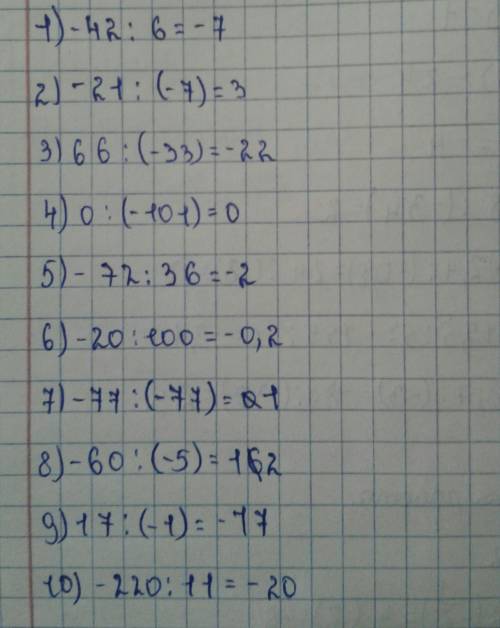 1) -42 : 6 = -7
2) -21 : (-7) = 3
3) 66 : (-33) = -22
4) 0 : (-101) = 0
5) - 72 : 36 = -2
6) -20 : 100 = -0,2
7) -77 : (-77) = 1
8) -60 : (-5) = 12
9) 17 : (-1) = -17
10) -220 : 11 = -20